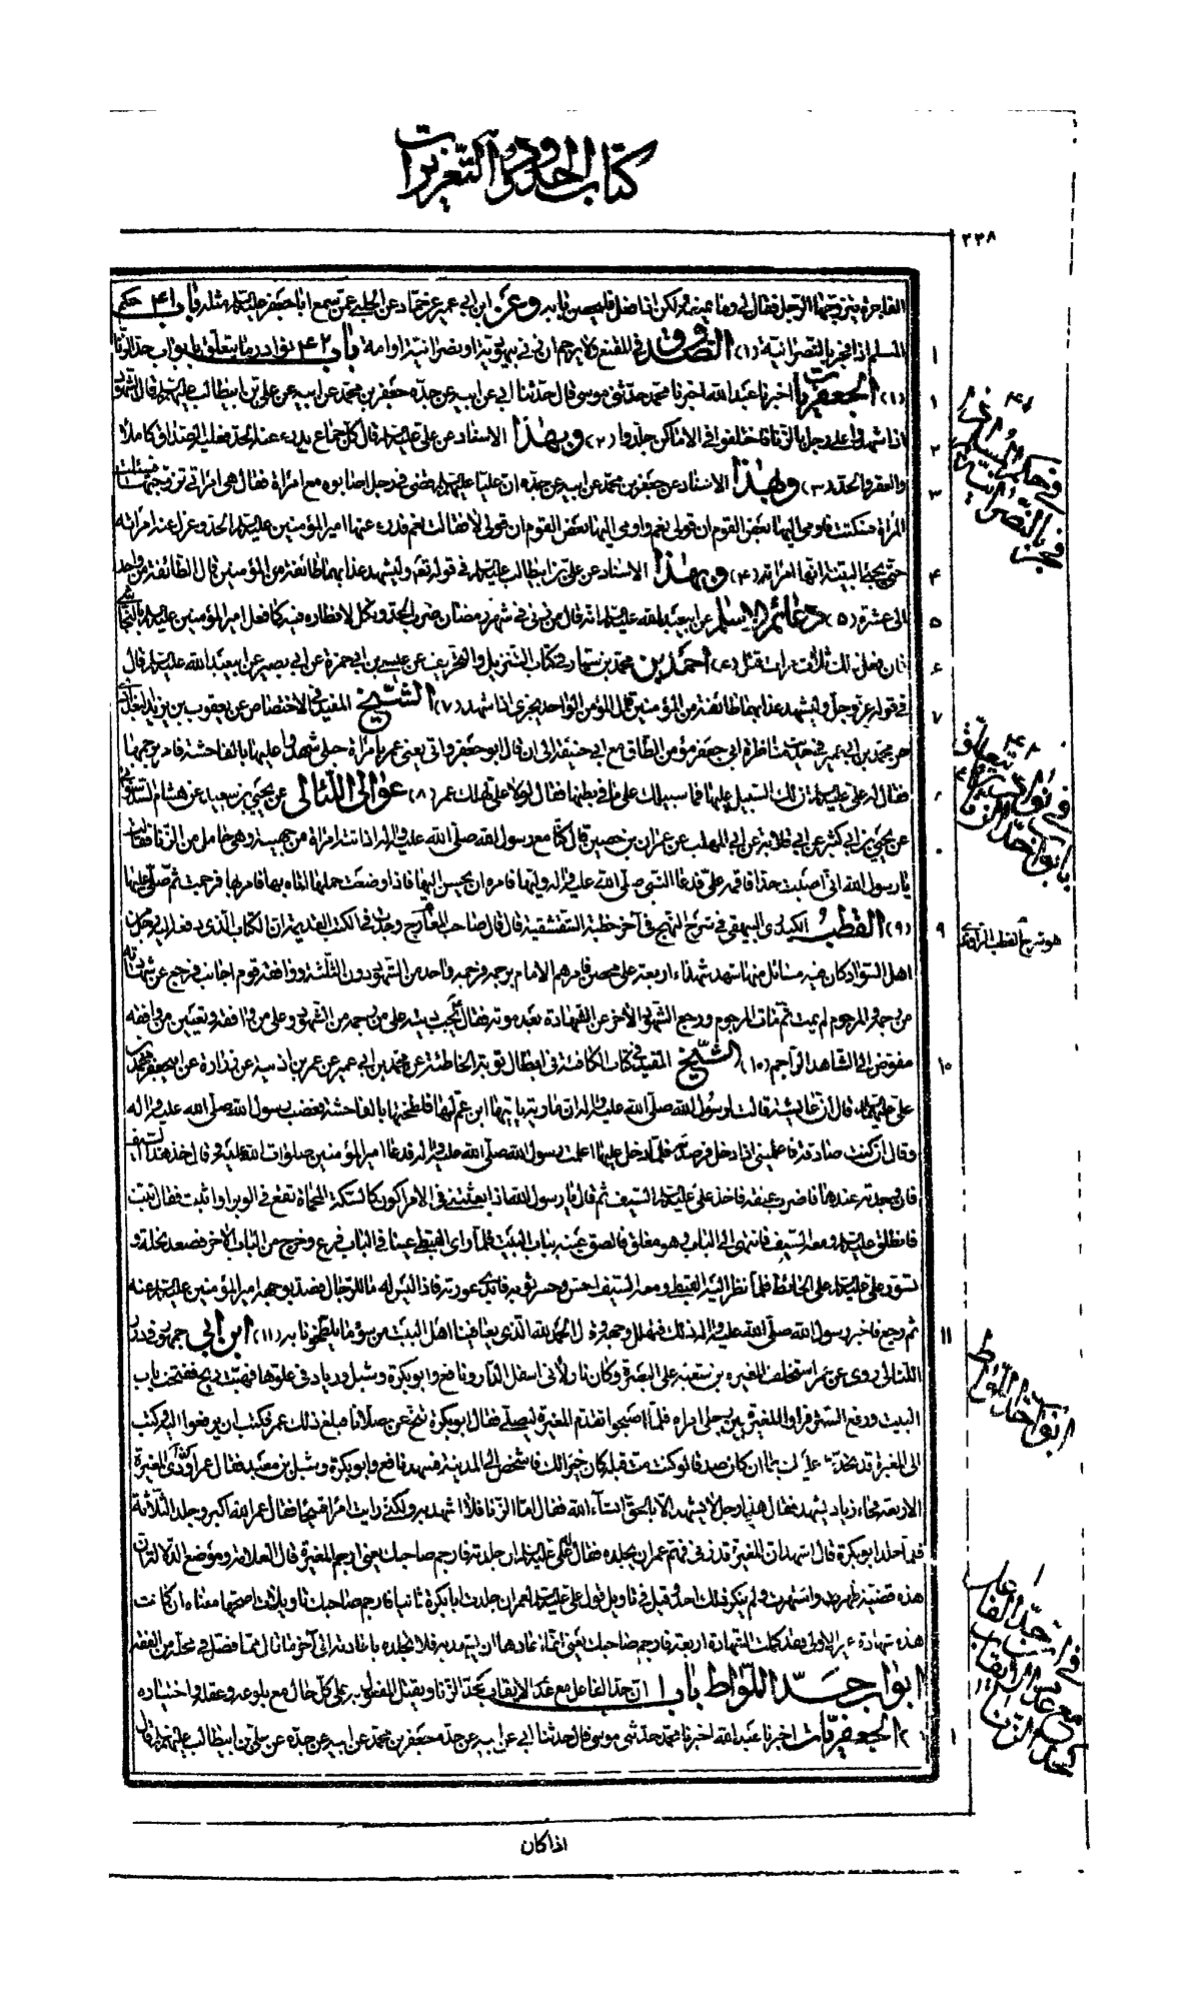 كتاب الحدود والتعزيرات
٢٢٨
الفاجرة يتزوجها الرجل فقال لي وما يمنعه ولكن اذا فعل فليحصن بابه وعن ابن ابي عمير عن حماد عن الحلبي عمن سمع ابا جعفر عليه السلام مثله باب ٤١ حكم
المسلم اذا فجر بالنصرانية (١) الصدوق في المقنع ولا يرجم ان زنى بيهودية او نصرانية او امة باب ٤٢ نوادر ما يتعلق بابواب حد الزنا
(١) الجعفريات اخبرنا عبد الله اخبرنا محمد حدثني موسى قال حدثنا ابي عن ابيه عن جده جعفر بن محمد عن ابيه عن علي بن ابيطالب عليهم السلام قال الشهود
اذا شهدوا على رجل بالزنا فاختلفوا في الاماكن جلدوا (٢) وبهذا الاسناد عن علي عليه السلام قال كل جماع يدرء عنه الحد فعليه الصداق كاملا
والعقر والحد (٣) وبهذا الاسناد عن جعفر بن محمد عن ابيه عن جده ان عليا عليه السلام قضى في رجل اصابوه مع امرأة فقال هي امرأتي تزوجتها فسئلت
المرأة فسكتت فاومى اليها بعض القوم ان قولي نعم واومى اليها بعض القوم ان قولي لا فقالت نعم فدرء عنها امير المؤمنين عليه السلام الحد وعزل عنه امرأته
حتى يجئ البينة انها امرأته (٤) وبهذا الاسناد عن علي بن ابيطالب عليه السلام في قوله تعالى وليشهد عذابهما طائفة من المؤمنين قال الطائفة من واحد
الى عشرة (٥) دعائم الاسلام عن ابيعبد الله عليه السلام انه قال من زنى في شهر رمضان ضرب الحد ونكل لافطاره فيه كما فعل امير المؤمنين عليه السلام بالنجاشي
فان فعل ذلك ثلاث مرات قتل (٦) احمد بن محمد بن سيار في كتاب التنزيل والتحريف عن عيسى بن ابي حمزة عن ابي بصير عن ابيعبد الله عليه السلام قال
في قوله عز وجل وليشهد عذابهما طائفة من المؤمنين قال المؤمن الواحد يجزي اذا شهد (٧) الشيخ المفيد في الاختصاص عن يعقوب بن يزيد البغدادي
عن محمد بن ابي عمير في حديث مناظرة ابي جعفر مؤمن الطاق مع ابي حنيفة الى ان قال ابو جعفر واتى يعني عمر بامرأة حبلى شهدوا عليها بالفاحشة فامر برجمها
فقال له علي عليه السلام ان كان لك السبيل عليها فما سبيلك على ما في بطنها فقال لولا علي لهلك عمر (٨) عوالي اللئالي عن يحيى بن سعيد عن هشام الدستوائي
عن يحيى بن ابي كثير عن ابي قلابة عن ابي المهلب عن عمران بن حصين قال كنا مع رسول الله صلى الله عليه واله اذ اتته امرأة من جهينة وهي حامل من الزنا فقالت
يا رسول الله اني اصبت حدا فاقمه علي فدعا النبي صلى الله عليه واله وليها فامره ان يحسن اليها فاذا وضعت حملها اتاه بها فامر بها فرجمت ثم صلى عليها
(٩) القطب الكيدري البيهقي في شرح النهج في آخر خطبة الشقشقية قال قال صاحب المعارج وجدت في الكتب القديمة ان الكتاب الذي دفعه اليه رجل من
اهل السواد كان فيه مسائل منها شهد شهداء اربعة على محصن فامرهم الامام برجمه فرجمه واحد من الشهود دون الثلثة ووافقه قوم اجانب فرجع عن شهادته
من رجمه والمرجوم لم يمت ثم مات المرجوم ورجع الشهود الاخر عن الشهادة بعد موته فقال تجب ديته على من رجمه من الشهود وعلى من وافقه وتعيين من وافقه
مفوض الى الشاهد الراجم (١٠) الشيخ المفيد في كتاب الكافئة في ابطال توبة الخاطئة عن محمد بن ابي عمير عن عمر بن اذينة عن زرارة عن ابيجعفر محمد بن
علي عليهما السلام قال ان عايشة قالت لرسول الله صلى الله عليه واله ان مارية يأتيها ابن عم لها فلطختها بالفاحشة فغضب رسول الله صلى الله عليه واله
وقال ان كنت صادقة فاعلميني اذا دخل فرصدته فلما دخل عليها اعلمت رسول الله صلى الله عليه واله فدعا امير المؤمنين صلوات الله عليه وقال خذ هذا السيف
فان وجدته عندها فاضرب عنقه فاخذ علي عليه السلام السيف ثم قال يا رسول الله اذا بعثتني في الامر اكون كالسكة المحماة تقع في الوبر او اثبت فقال تثبت
فانطلق عليه السلام ومعه السيف فانتهى الى الباب وهو مغلق فالصق عينه بباب البيت فلما رأى القبطي عينا في الباب فزع وخرج من الباب الاخر فصعد نخلة و
تسور علي عليه السلام على الحائط فلما نظر اليه القبطي ومعه السيف احس وحسر ثوبه فابدى عورته فاذا ليس له ما للرجال فصد بوجهه امير المؤمنين عليه السلام عنه
ثم رجع فاخبر رسول الله صلى الله عليه واله بذلك فتهلل وجهه وقال الحمد لله الذي يعافينا اهل البيت من سوء ما يلطخونا به (١١) ابن ابي جمهور في درر
اللئالي روى عن عمر استخلف المغيرة بن شعبة على البصرة وكان نازلا في اسفل الدار ونافع وابو بكرة وشبل وزياد في علوها فهبت ريح ففتحت باب
البيت ورفع الستر فرأوا المغيرة بين رجلي امرأة فلما اصبحوا تقدم المغيرة ليصلي فقال ابو بكرة تنح عن صلاتنا فبلغ ذلك عمر فكتب ان يرفعوا اليه وكتب
الى المغيرة قد تحدث عليك بما ان كان صدقا لو كنت مت قبله كان خيرا لك فاشخص الى المدينة فشهد نافع وابو بكرة وشبل بن معبد فقال عمر اودى المغيرة
الا ربعه فجاء زياد ليشهد فقال هذا رجل لا يشهد الا بالحق انشاء الله فقال اما الزنا فلا اشهد به ولكني رأيت امرا قبيحا فقال عمر الله اكبر وجلد الثلاثة
فلما جلد ابو بكرة قال اشهد ان المغيرة قد زنى فهم عمر ان يجلده فقال له علي عليه السلام ان جلدته فارجم صاحبك يعني ارجم المغيرة قال العلامة وموضع الدلالة ان
هذه قضية ظهرت واشتهرت ولم ينكر ذلك احد وقيل في تأويل قول علي عليه السلام لعمر ان جلدت ابا بكرة ثانيا فارجم صاحبك تأويلات اصحها معناه ان كانت
هذه شهادة غير الاولى فقد كملت الشهادة اربعة فارجم صاحبك يعني انما اعادها ان يشهد به فلا تجلده باعادته الى آخر ما قال مما فصل في محله من الفقه
ابواب حد اللواط باب ١ ان حد الفاعل مع عدم الايقاب كحد الزنا ويقتل المفعول به على كل حال مع بلوغه وعقله واختياره
(١) الجعفريات اخبرنا عبد الله اخبرنا محمد حدثني موسى قال حدثنا ابي عن ابيه عن جده جعفر بن محمد عن ابيه عن جده عن علي بن ابيطالب عليهم السلام قال
اذا كان
٤١
في حكم المسلم اذا
فجر بالنصرانية
٤٢
في نوادر ما يتعلق
بابواب حد الزنا
هو شرح القطب الراوندي
ابواب حد اللواط
١
في ان حد الفاعل
مع عدم الايقاب
كحد الزنا